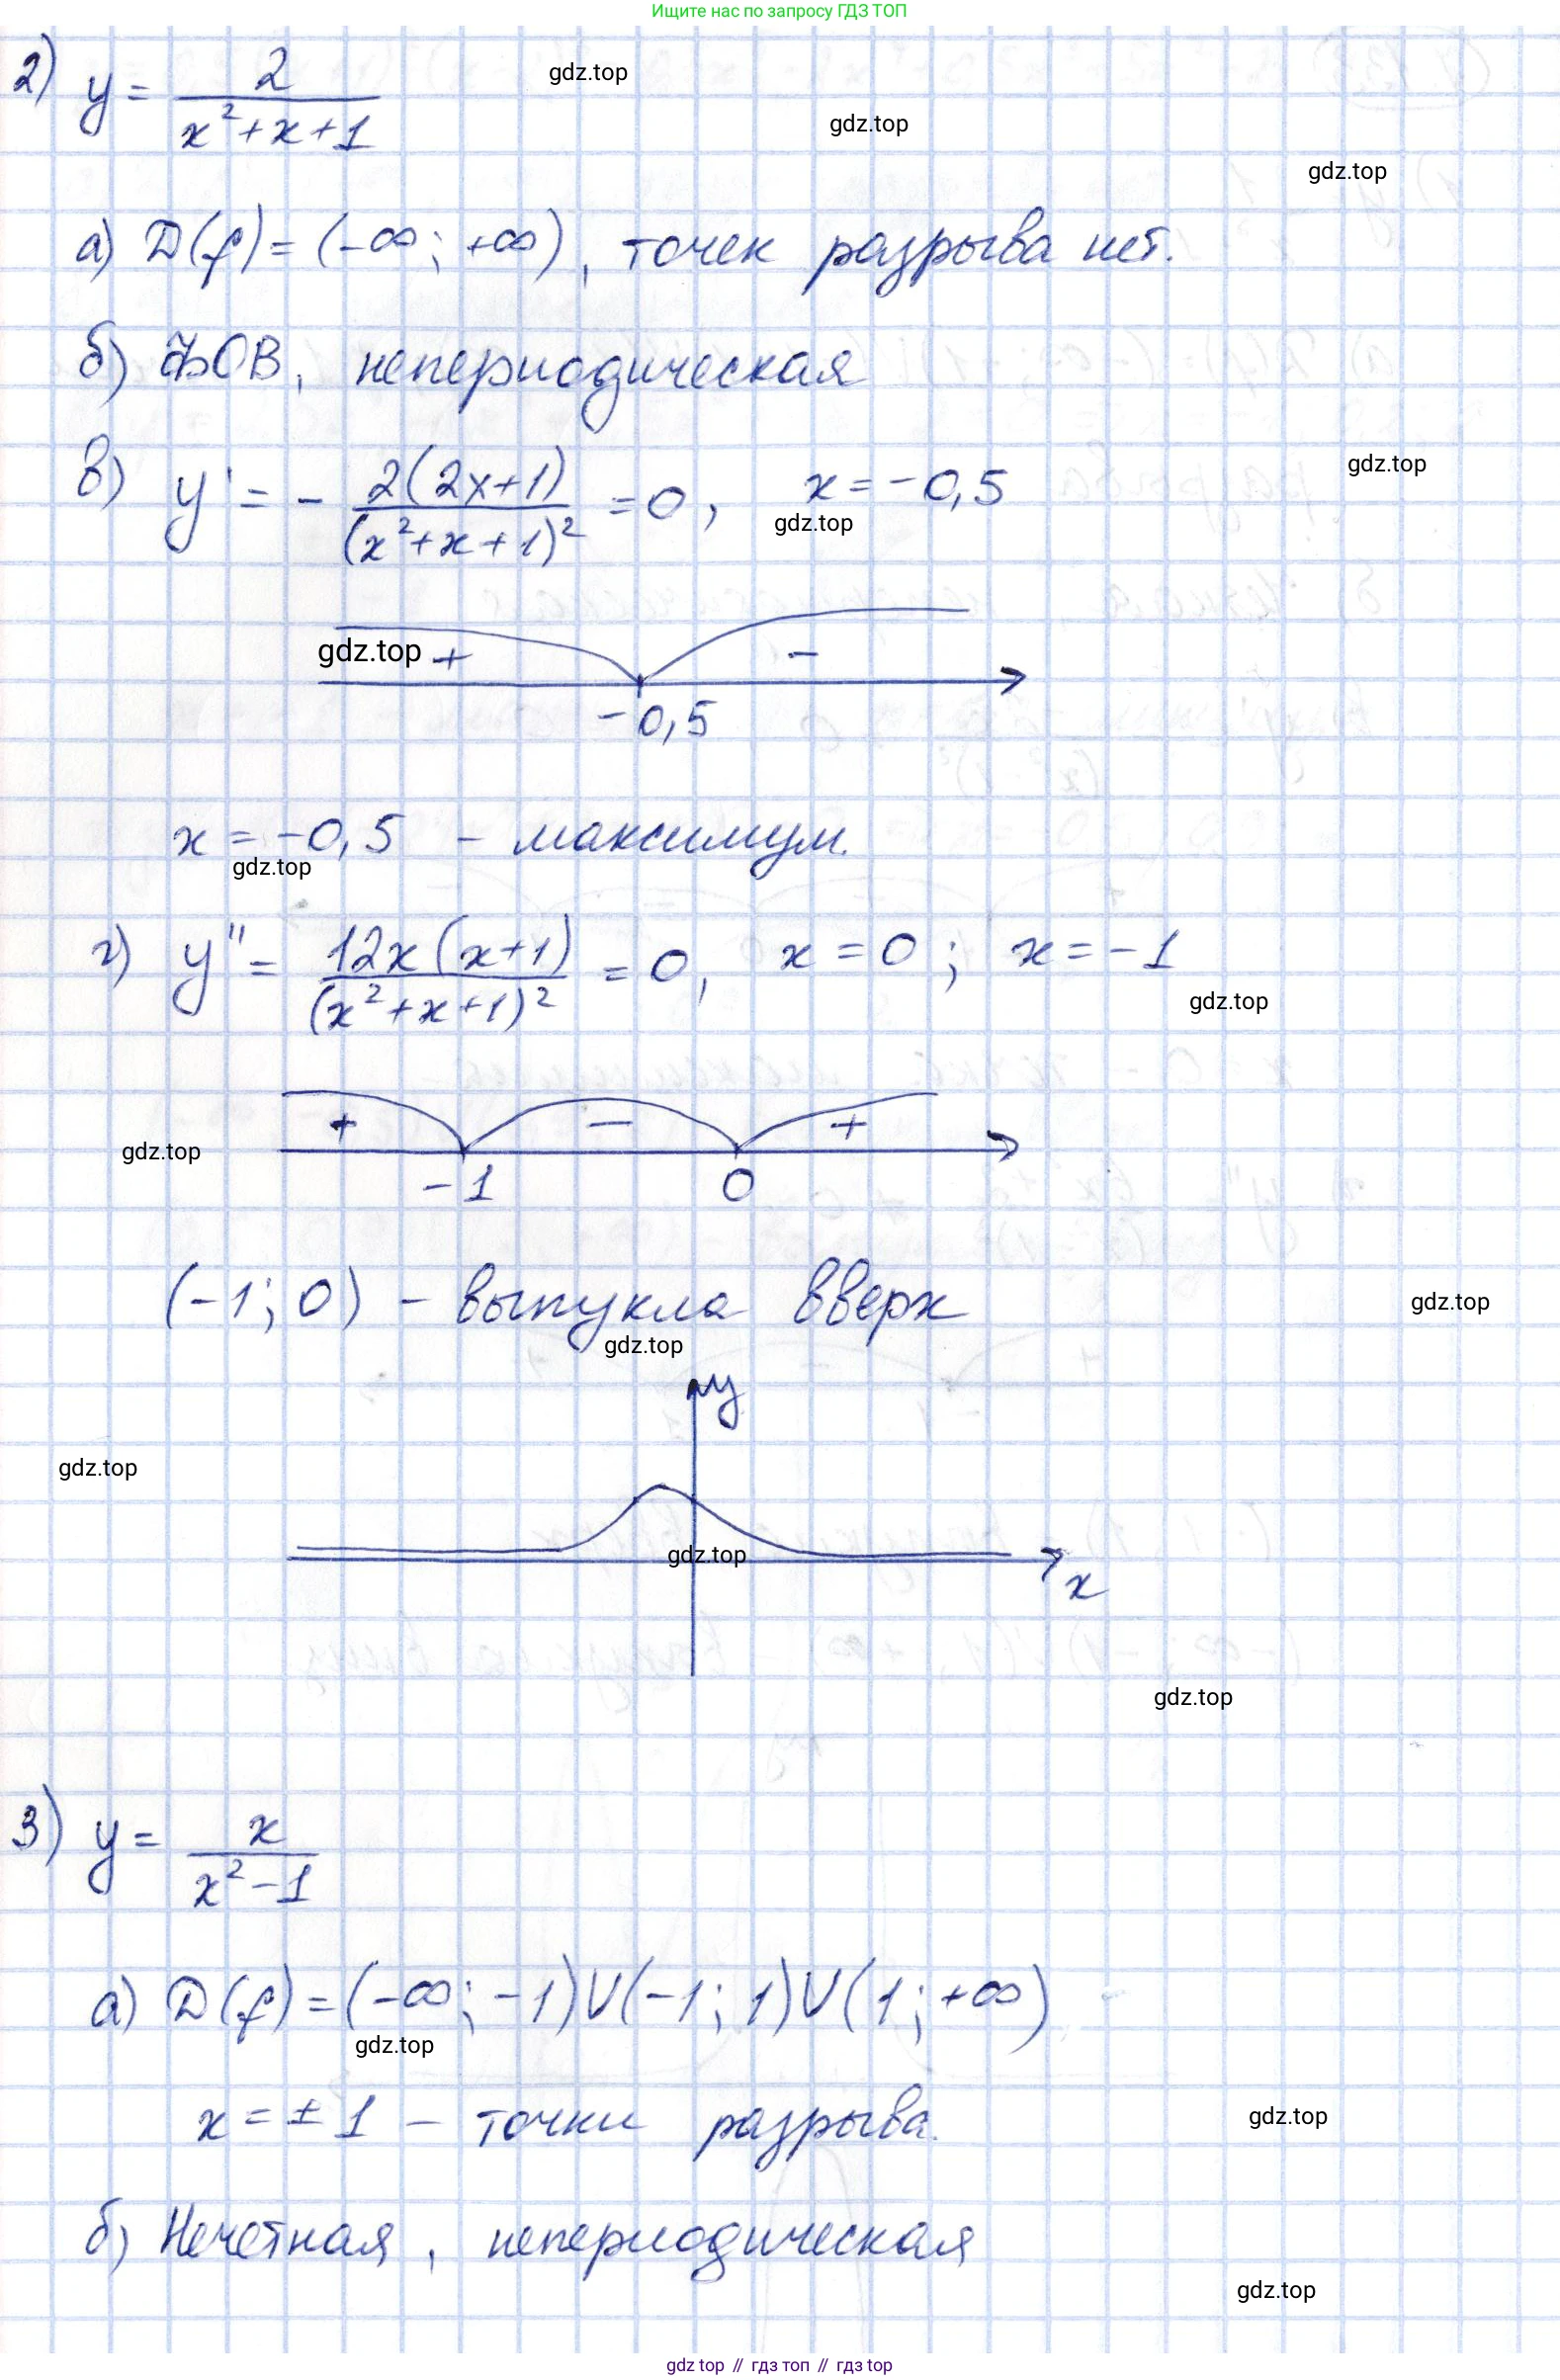 Ищите нас по запросу ГДЗ ТОП
2) y = 2 / (x² + x + 1)
gdz.top
gdz.top
gdz.top
а) D(f) = (-∞; +∞), точек разрыва нет.
б) ФОВ, непериодическая
в) y' = - 2(2x+1) / (x² + x + 1)² = 0, x = -0,5
gdz.top
gdz.top
gdz.top + -
-0,5
x = -0,5 - максимум.
gdz.top
г) y'' = 12x(x+1) / (x² + x + 1)² = 0, x = 0; x = -1
gdz.top
+ - +
gdz.top
-1 0
(-1; 0) - выпукла вверх
gdz.top
gdz.top
y
gdz.top
gdz.top
x
gdz.top
3) y = x / (x² - 1)
а) D(f) = (-∞; -1)U(-1; 1)U(1; +∞)
gdz.top
x = ± 1 - точки разрыва.
gdz.top
б) Нечетная, непериодическая
gdz.top
gdz top // гдз топ // гдз top